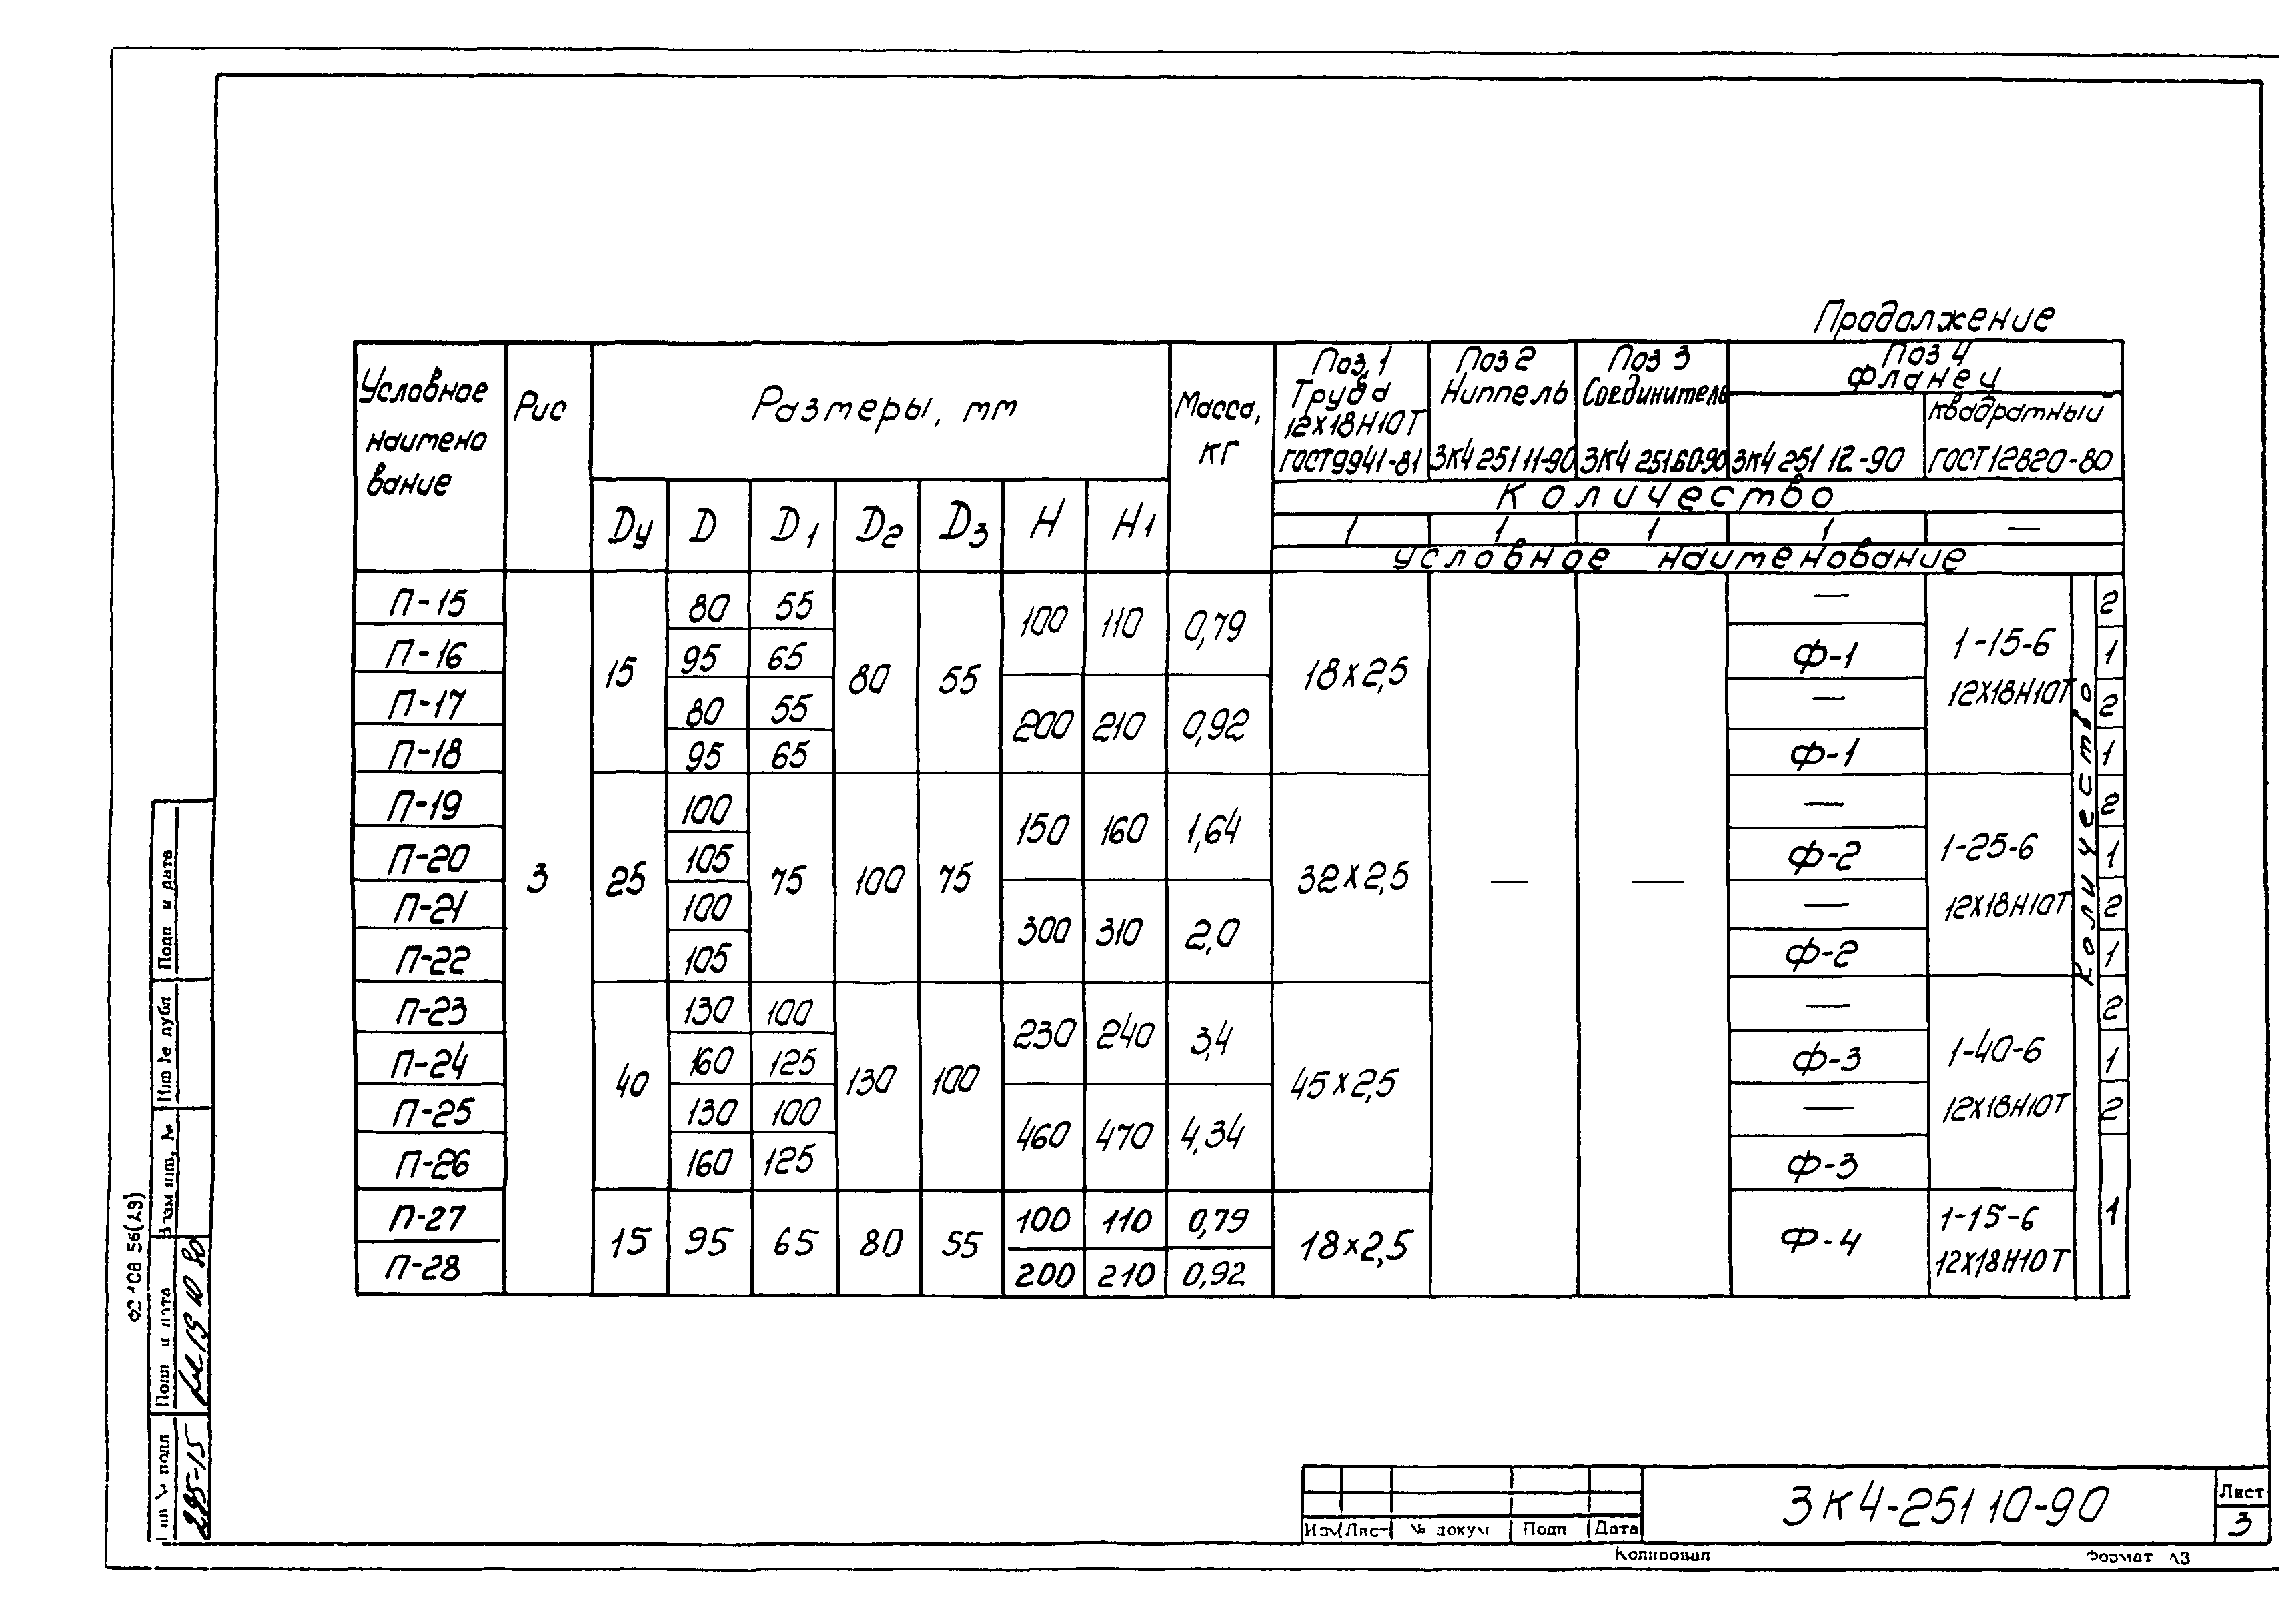 Продолжение
Условное наимено вание
Рис
Размеры, мм
Масса, кг
Поз. 1 Труба 12Х18Н10Т ГОСТ9941-81
Поз 2 Ниппель ЗК4 251 11-90
Поз 3 Соединитель ЗК4 251.60-90
Поз 4 Фланец
ЗК4 251 12-90
квадратный ГОСТ12820-80
Dу D D1 D2 D3 H H1
Количество
1 1 1 1 —
Условное наименование
Количество
П-15 80 55 100 110 0,79 — 2
П-16 95 65 Ф-1 1
15 80 55 18х2,5 1-15-6 12Х18Н10Т
П-17 80 55 200 210 0,92 — 2
П-18 95 65 Ф-1 1
П-19 100 150 160 1,64 — 2
П-20 105 Ф-2 1
3 25 75 100 75 32х2,5 — — 1-25-6 12Х18Н10Т
П-21 100 300 310 2,0 — 2
П-22 105 Ф-2 1
П-23 130 100 230 240 3,4 — 2
П-24 160 125 Ф-3 1
40 130 100 45х2,5 1-40-6 12Х18Н10Т
П-25 130 100 460 470 4,34 — 2
П-26 160 125 Ф-3
П-27 100 110 0,79 1
15 95 65 80 55 18х2,5 Ф-4 1-15-6 12Х18Н10Т
П-28 200 210 0,92
Подп и дата
Взам инв. №
295-15
Лист № докум Подп Дата
ЗК4-251 10-90
Лист
3
Копировал
Формат А3